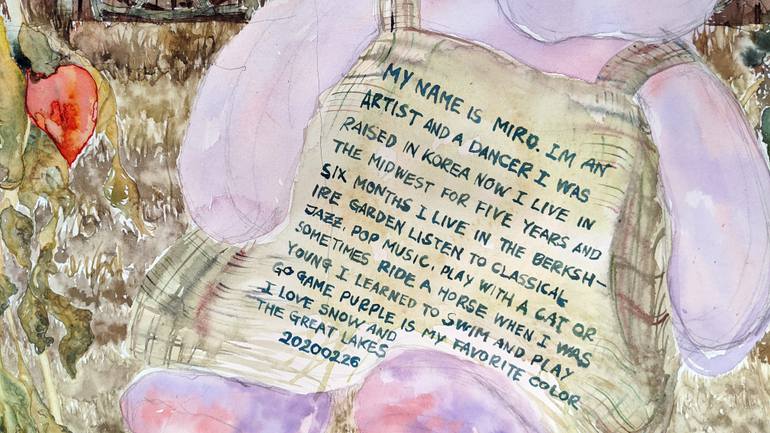 MY NAME IS MIRO. IM AN
ARTIST AND A DANCER I WAS
RAISED IN KOREA NOW I LIVE IN
THE MIDWEST FOR FIVE YEARS AND
SIX MONTHS I LIVE IN THE BERKSH-
IRE GARDEN LISTEN TO CLASSICAL
JAZZ, POP MUSIC, PLAY WITH A CAT OR
SOMETIMES RIDE A HORSE WHEN I WAS
YOUNG I LEARNED TO SWIM AND PLAY
GO GAME PURPLE IS MY FAVORITE COLOR
I LOVE SNOW AND
THE GREAT LAKES
20200226